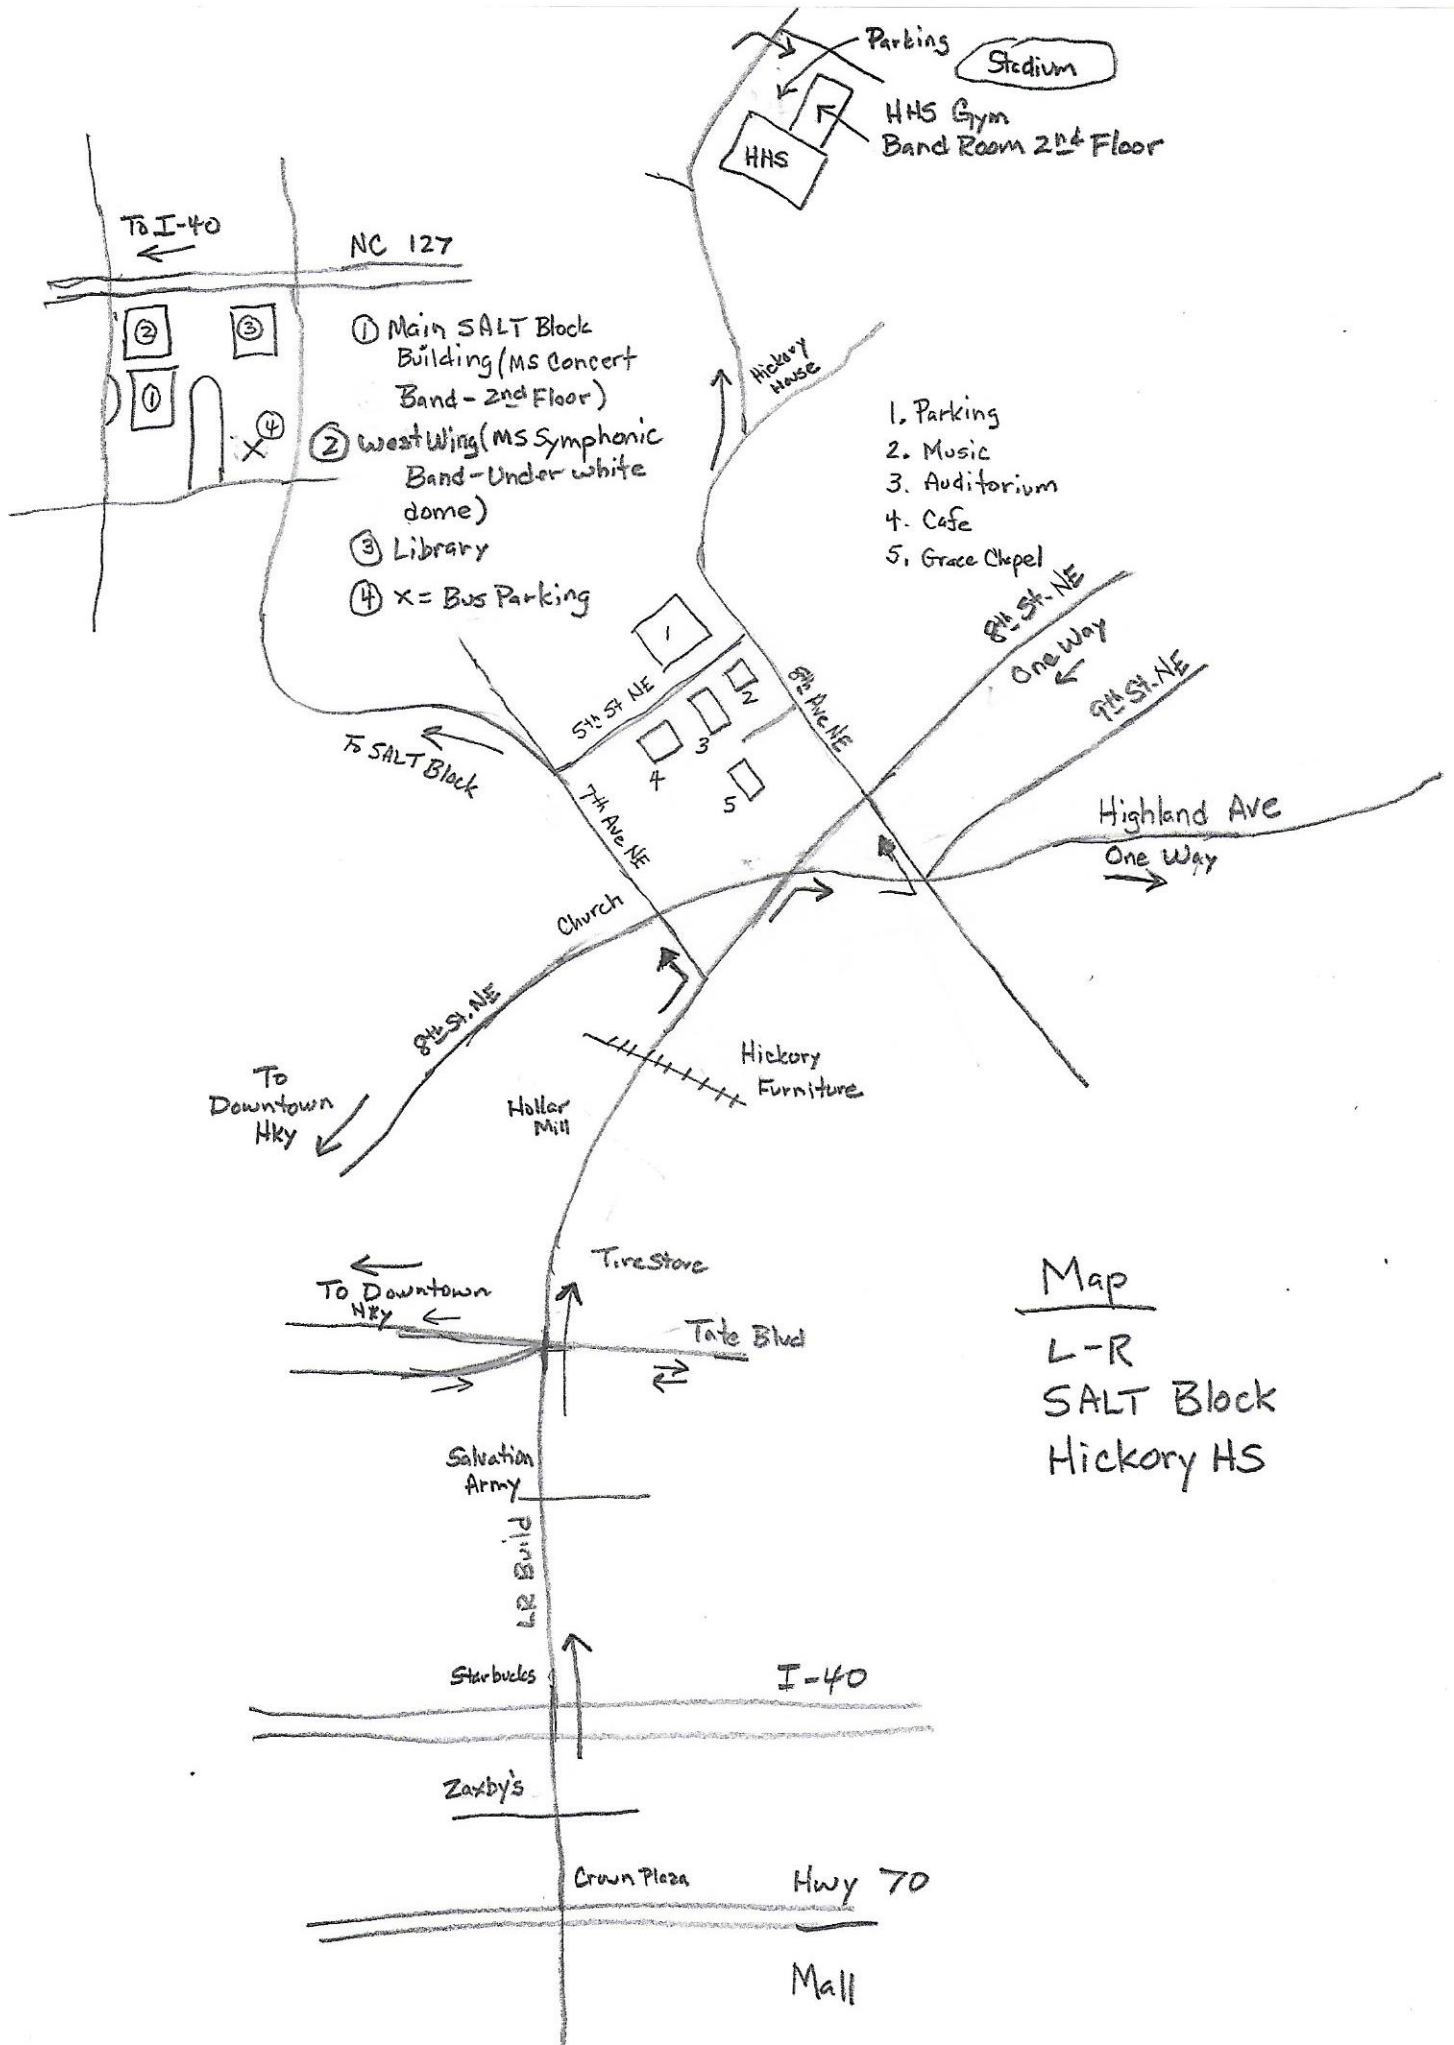 Parking
Stadium
HHS Gym
Band Room 2nd Floor
HHS
To I-40
NC 127
2
3
1
4
X
1 Main SALT Block
Building (MS Concert
Band - 2nd Floor)
2 West Wing (MS Symphonic
Band - Under white
dome)
3 Library
4 X = Bus Parking
Hickory
House
1. Parking
2. Music
3. Auditorium
4. Cafe
5. Grace Chapel
8th St. NE
One Way
9th St. NE
1
5th St NE
2
3
4
5
8th Ave NE
To SALT Block
7th Ave NE
Highland Ave
One Way
Church
8th St. NE
To
Downtown
Hky
Hickory
Furniture
Hollar
Mill
Tire Store
To Downtown
Hky
Tate Blvd
Map
L-R
SALT Block
Hickory HS
Salvation
Army
LR Bvld
Starbucks
I-40
Zaxby's
Crown Plaza
Hwy 70
Mall